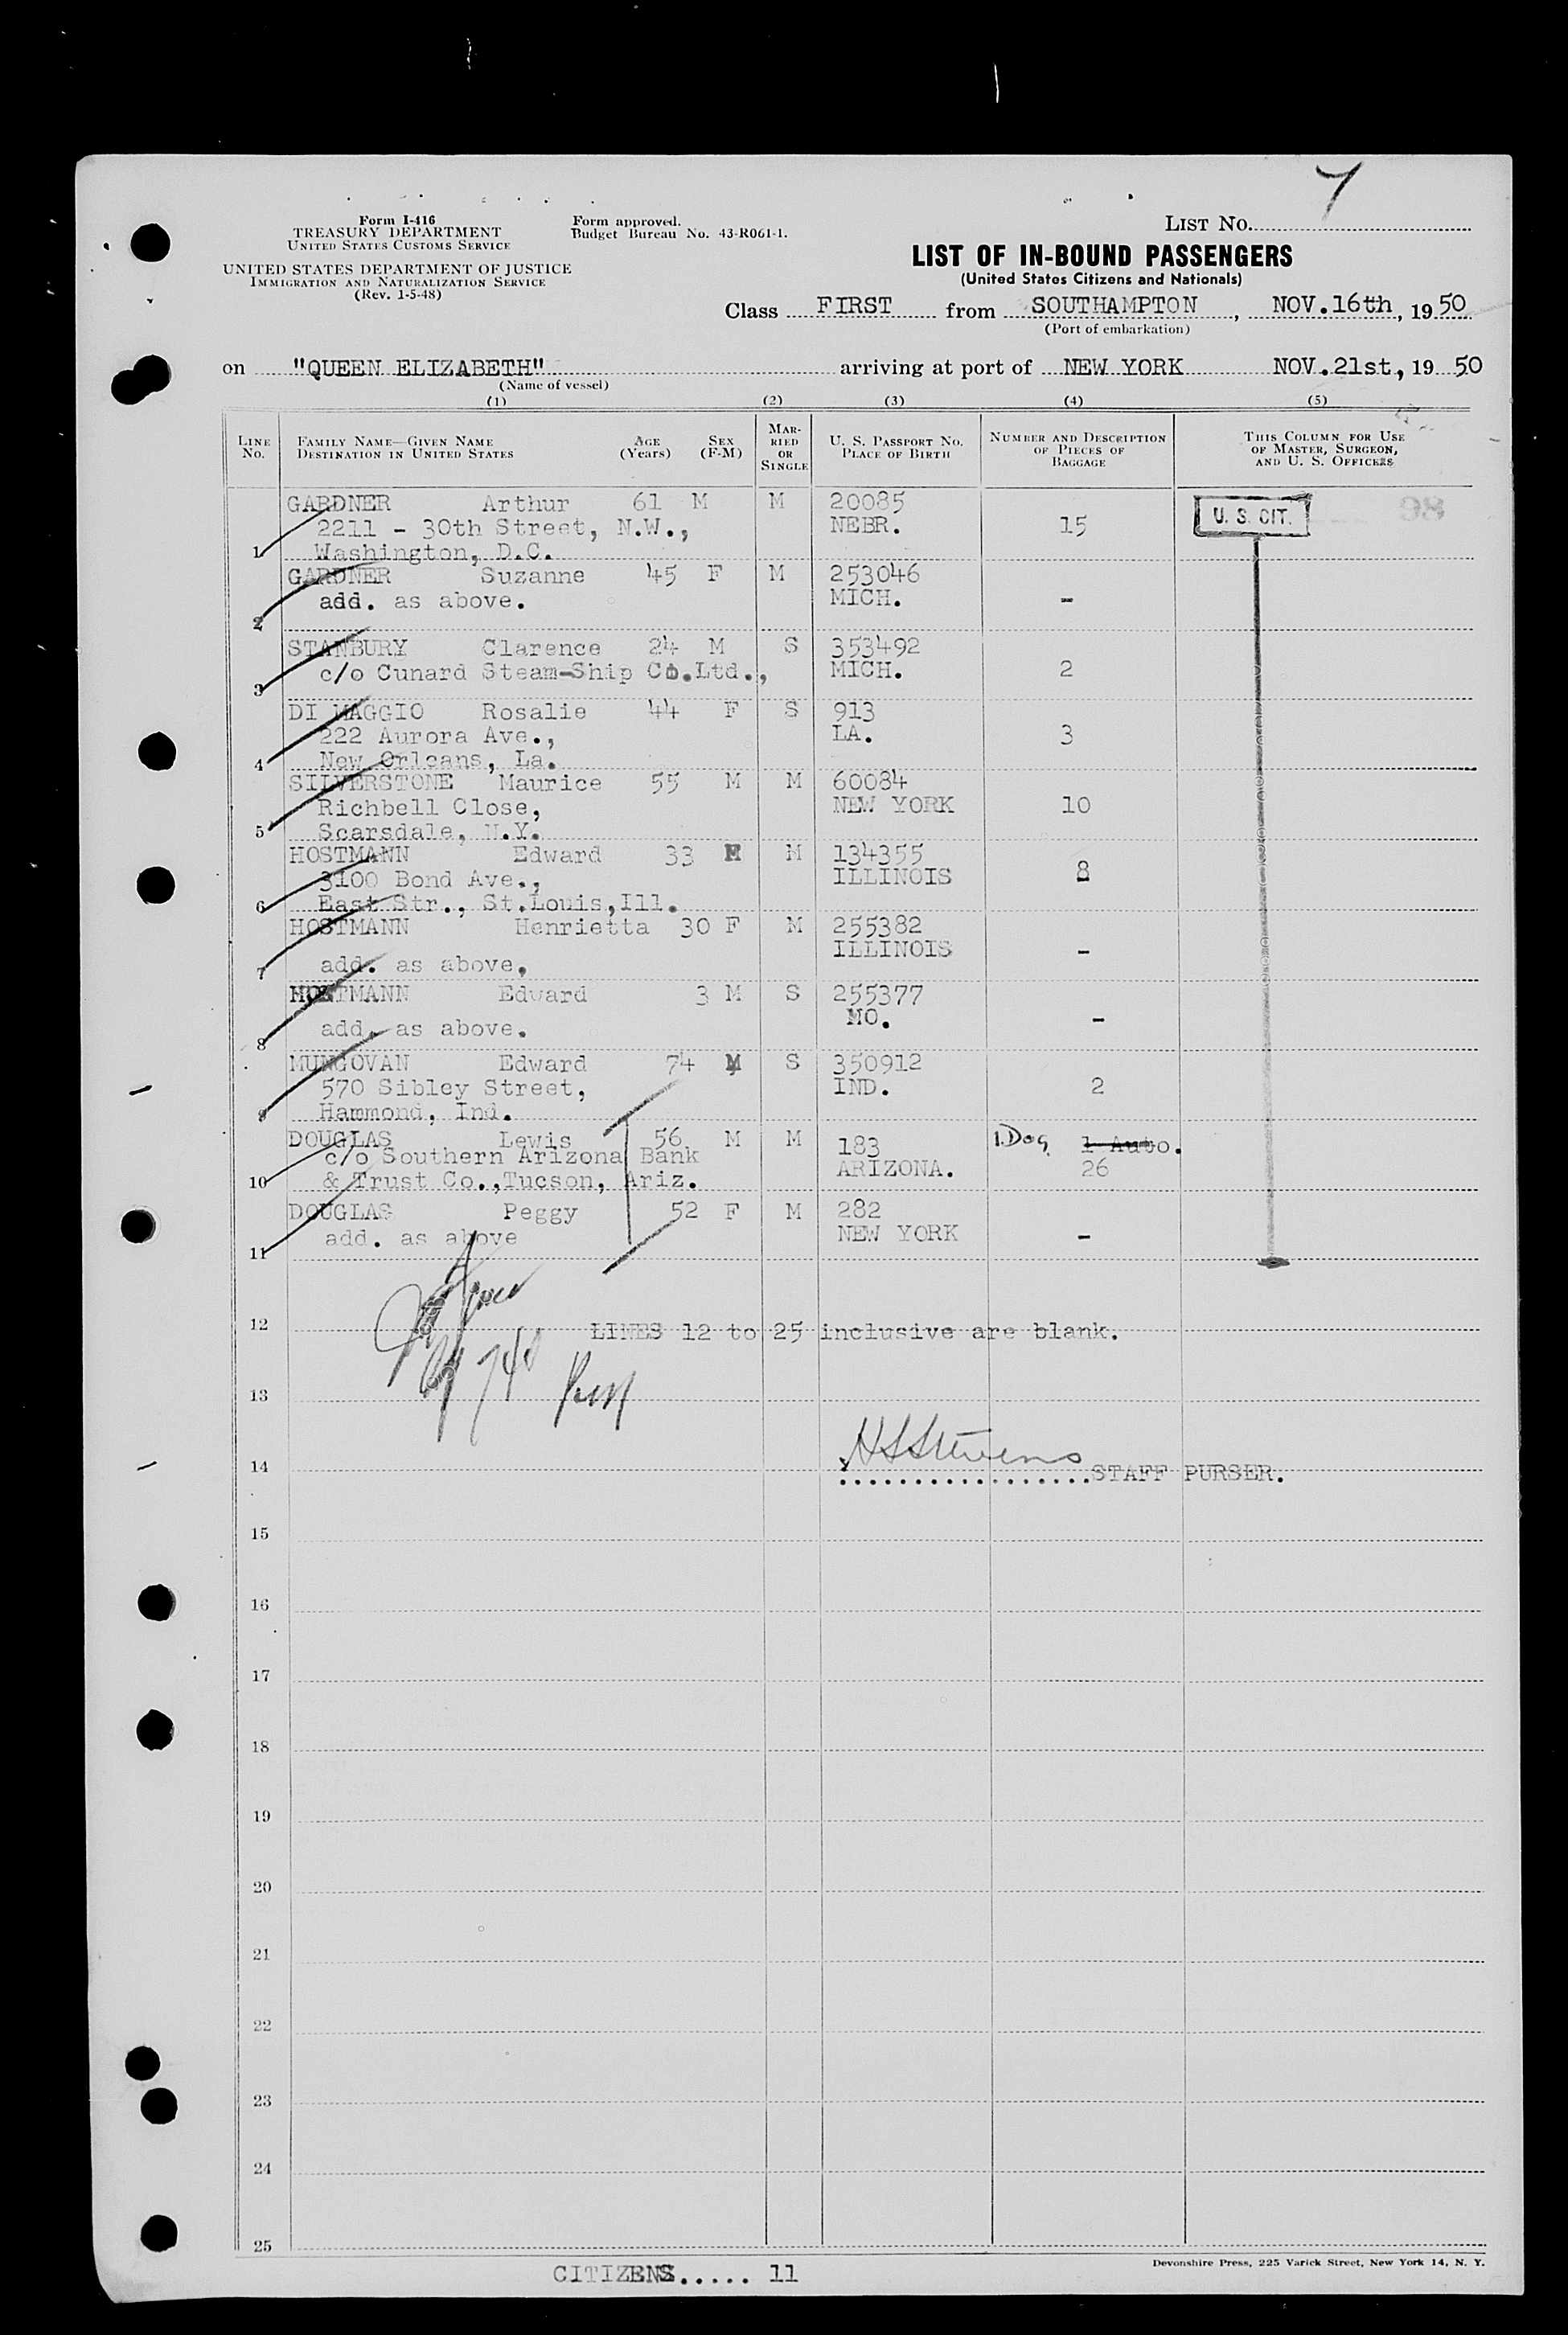 7
Form I-416
TREASURY DEPARTMENT
UNITED STATES CUSTOMS SERVICE
Form approved.
Budget Bureau No. 43-R061-1.
LIST NO.
UNITED STATES DEPARTMENT OF JUSTICE
IMMIGRATION AND NATURALIZATION SERVICE
(Rev. 1-5-48)
LIST OF IN-BOUND PASSENGERS
(United States Citizens and Nationals)
Class FIRST from SOUTHAMPTON, NOV.16th, 1950
(Port of embarkation)
on "QUEEN ELIZABETH" arriving at port of NEW YORK NOV.21st, 19 50
(Name of vessel)
(1) (2) (3) (4) (5)
LINE NO. FAMILY NAME—GIVEN NAME DESTINATION IN UNITED STATES AGE (Years) SEX (F-M) MARRIED OR SINGLE U. S. PASSPORT NO. PLACE OF BIRTH NUMBER AND DESCRIPTION OF PIECES OF BAGGAGE THIS COLUMN FOR USE OF MASTER, SURGEON, AND U. S. OFFICERS
GARDNER Arthur 61 M M 20085 U. S. CIT. 98
2211 - 30th Street, N.W., NEBR. 15
1 Washington, D.C.
GARDNER Suzanne 45 F M 253046
add. as above. MICH. -
2
STANBURY Clarence 24 M S 353492
c/o Cunard Steam-Ship Co.Ltd., MICH. 2
3
DI MAGGIO Rosalie 44 F S 913
222 Aurora Ave., LA. 3
4 New Orleans, La.
SILVERSTONE Maurice 55 M M 60084
Richbell Close, NEW YORK 10
5 Scarsdale, N.Y.
HOSTMANN Edward 33 M M 134355
3100 Bond Ave., ILLINOIS 8
6 East Str., St.Louis,Ill.
HOSTMANN Henrietta 30 F M 255382
ILLINOIS -
7 add. as above.
HOSTMANN Edward 3 M S 255377
MO. -
8 add. as above.
MUNGOVAN Edward 74 M S 350912
570 Sibley Street, IND. 2
9 Hammond, Ind.
DOUGLAS Lewis 56 M M 183 1.Dog 1 Auto.
c/o Southern Arizona Bank ARIZONA. 26
10 & Trust Co.,Tucson, Ariz.
DOUGLAS Peggy 52 F M 282
add. as above NEW YORK -
11
12 LINES 12 to 25 inclusive are blank.
13
H S Stevens
14 .................STAFF PURSER.
15
16
17
18
19
20
21
22
23
24
25
CITIZENS..... 11
Devonshire Press, 225 Varick Street, New York 14, N. Y.